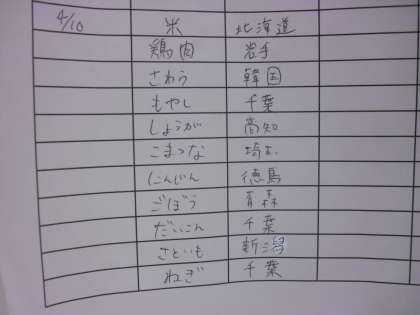 4/10 米 北海道
鶏肉 岩手
さわら 韓国
もやし 千葉
しょうが 高知
こまつな 埼玉
にんじん 徳島
ごぼう 青森
だいこん 千葉
さといも 新潟
ねぎ 千葉